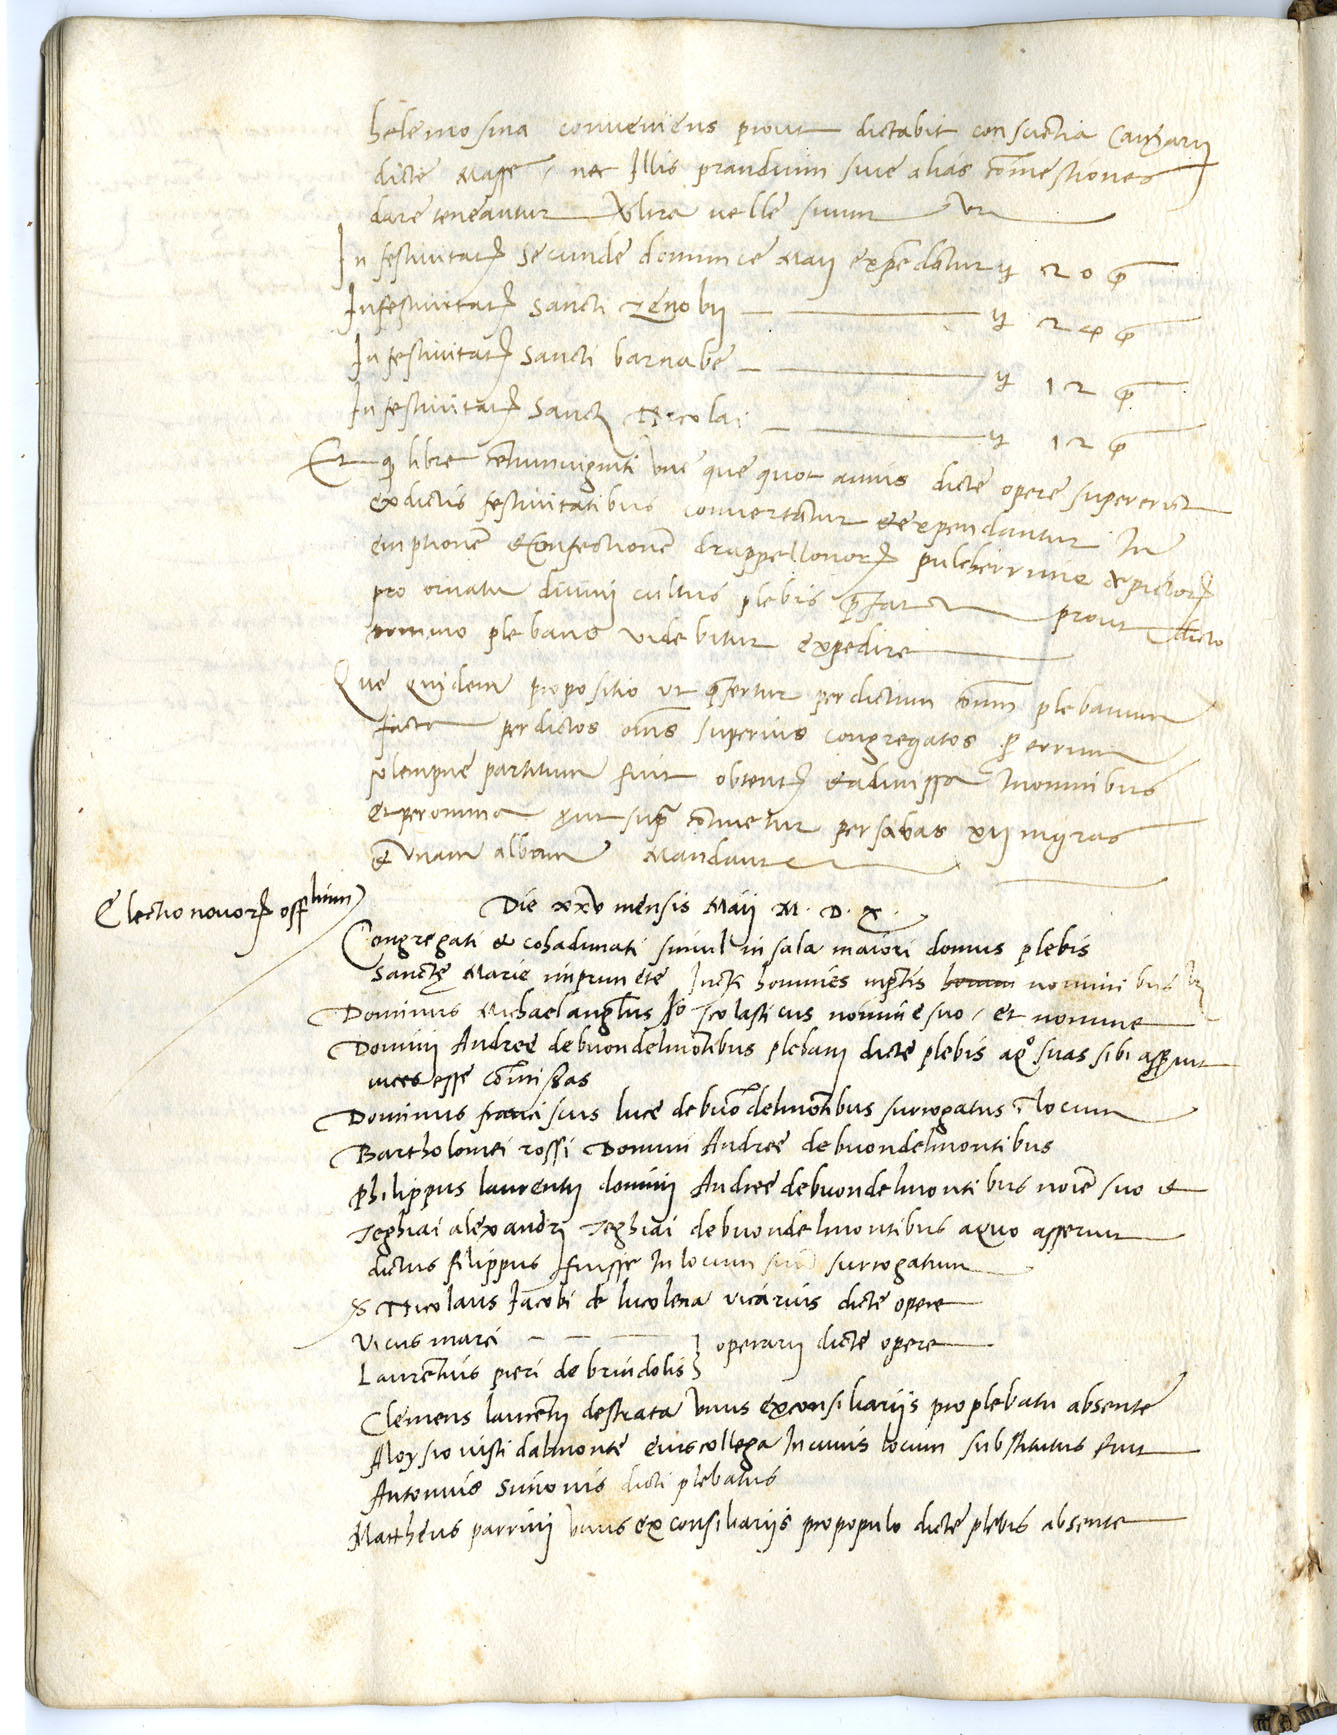 helemosina conveniens prout dictabit conscientia Camerarii
dicte Masse, nec Illis prandium sive alias comestiones
dare teneantur Ultra velle suum
In festivitate secunde dominice Maii expendantur 20
In festivitate Sancti Zenobii 24
In festivitate Sancti barnabe 12
In festivitate Sancti Nicolai 12
Et libre centumviginti que quot annis dicte opere supererunt
ex dictis festivitatibus convertantur et expendantur In
emptionem et confectionem drappellonorum pulcherrime et pictorum
pro ornatu divini cultus plebis prout dicto
domino plebano videbitur expedire
Que quidem propositio ut prefertur per dictum dominum plebanum
facta per dictos omnes superius congregatos per eorum
solempne partitum fuit obtenta et admissa In omnibus
et per omnia prout supra continetur per fabas xii nigras
et Unam albam Mandantes
Electio novorum offitialium
Die xxv mensis Maii M.D.X.
Congregati et cohadunati simul in sala maiori domus plebis
Sancte Marie imprunete homines nominibus
Dominus Michaelangelus scolasticus nomine suo, et nomine
Domini Andree de buondelmontibus plebani dicte plebis a quo suas sibi asseruit
vices esse commissas
Dominus franciscus luce de buondelmontibus surrogatus in locum
Bartholomei rossi Domini Andree de buondelmontibus
Philippus laurentii domini Andree de buondelmontibus noie suo et
Teghiai alexandri Teghiai de buondelmontibus a quo asseruit
dictus filippus fuisse In locum suum surrogatum
S Nicolaus Iacobi de lucolena vicarius dicte opere
Vicus marci
Laurentius pieri de brindolis } operarii dicte opere
Clemens laurentii de strata Unus ex consiliariis pro plebatu absente
Aloysio dalmonte eius collega In cuius locum substitutus fuit
Antonius Simonis dicti plebatus
Mattheus parrini Unus ex consiliariis pro populo dicte plebis absente